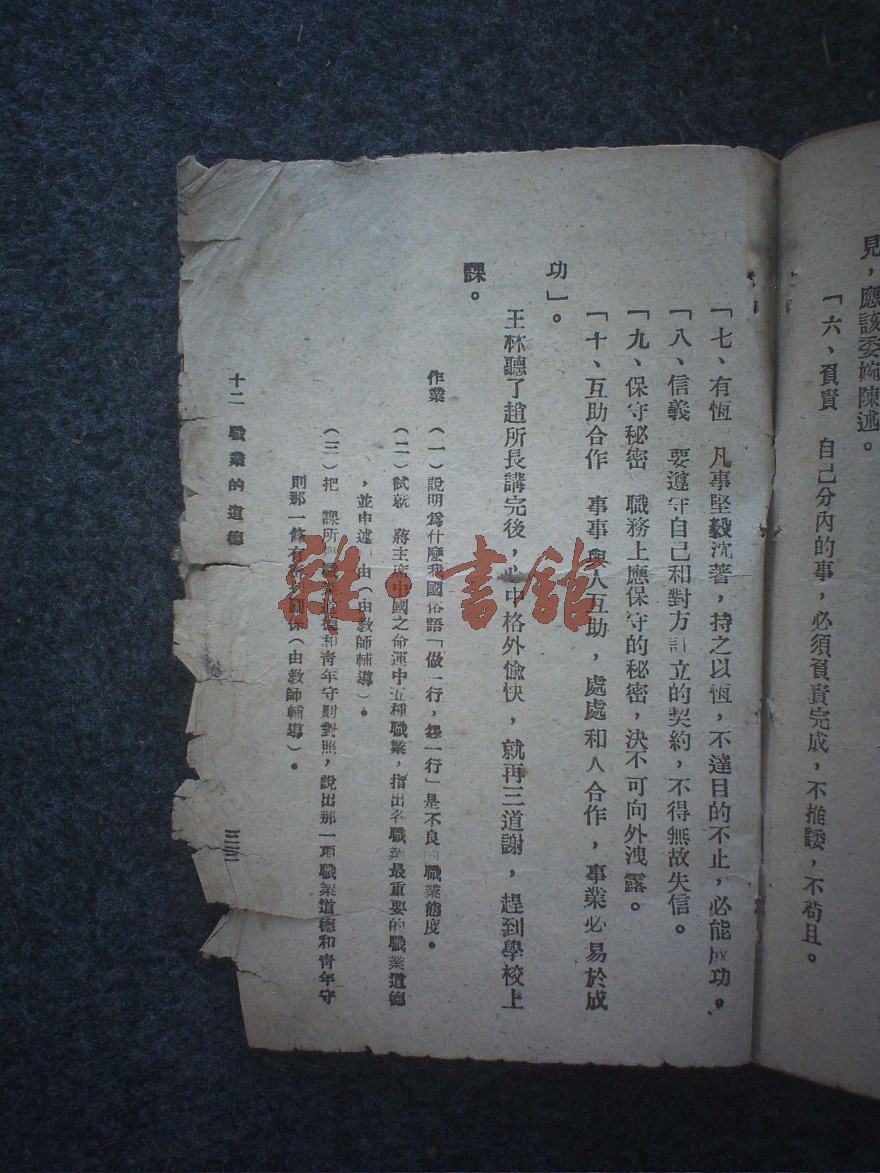 見，應該委婉陳述。
「六、負責　自己分內的事，必須負責完成，不推諉，不苟且。
「七、有恆　凡事堅毅沈著，持之以恆，不達目的不止，必能成功。
「八、信義　要遵守自己和對方訂立的契約，不得無故失信。
「九、保守秘密　職務上應保守的秘密，決不可向外洩露。
「十、互助合作　事事與人互助，處處和人合作，事業必易於成
功」。
王林聽了趙所長講完後，心中格外愉快，就再三道謝，趕到學校上
課。
作業　（一）說明爲什麼我國俗語「做一行，怨一行」是不良的職業態度。
（二）試就　蔣主席中國之命運中五種職業，指出各職業最重要的職業道德
，並申述　由（由教師輔導）。
（三）把　課所　和青年守則對照，說出那一項職業道德和青年守
則那一條有　關係（由教師輔導）。
十二　職業的道德
雜·書館